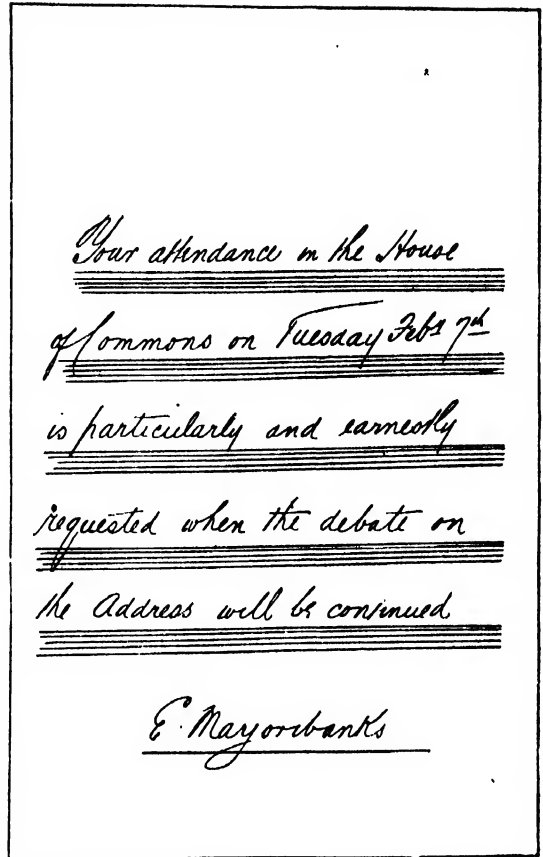 Your attendance in the House
of Commons on Tuesday Feby 7th
is particularly and earnestly
requested when the debate on
the Address will be continued
E. Marjoribanks